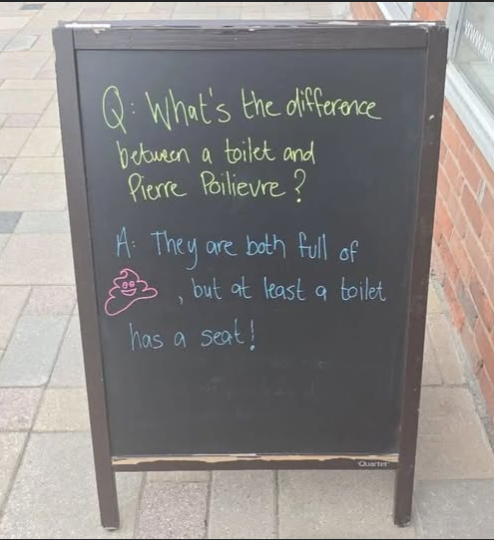 Q: What's the difference
between a toilet and
Pierre Poilievre?
A: They are both full of
, but at least a toilet
has a seat!
Quartet